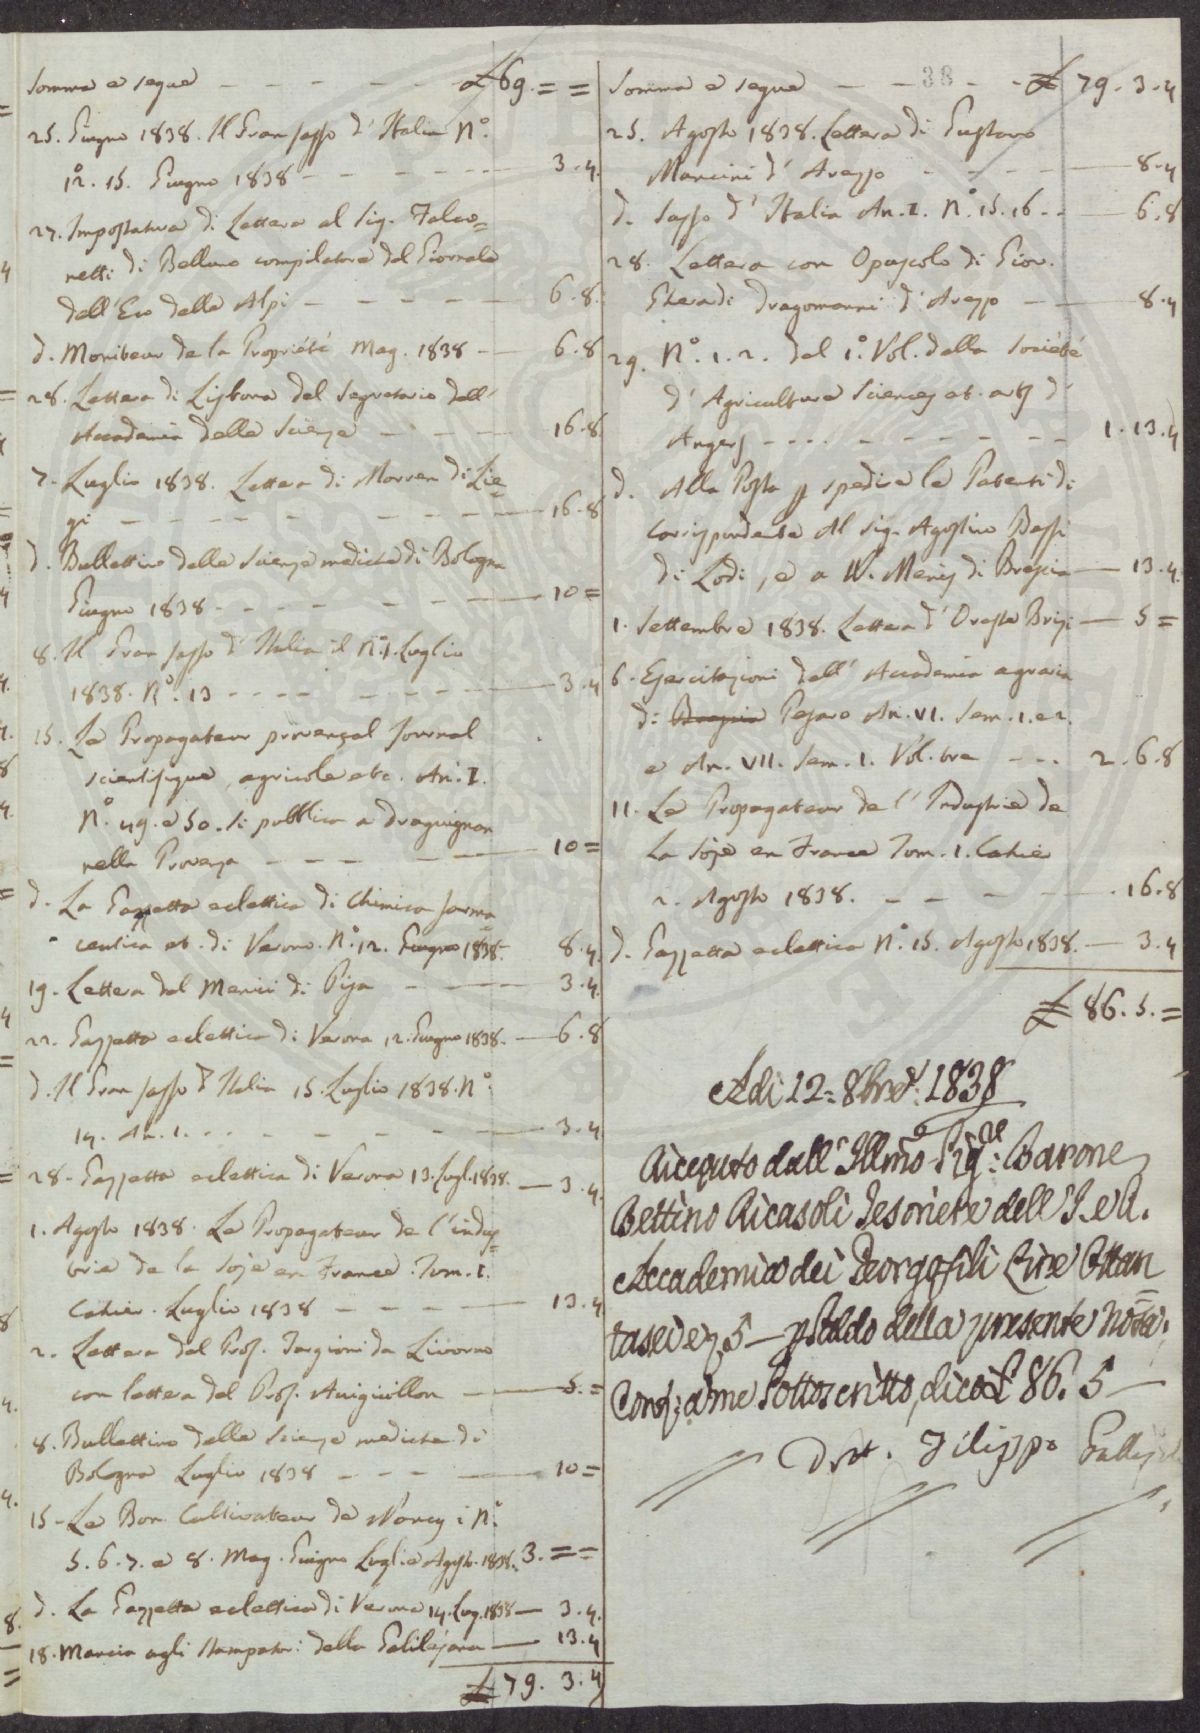 Somma e segue - - - - - £ 69. = =
25. Giugno 1838. Il Gran Sasso d'Italia N.°
12. 15. Giugno 1838 - - - - - 3.4
27. Impostatura di Lettera al Sig. Falco=
netti di Belluno compilatore del Giornale
dell'Eco delle Alpi - - - - - 6.8.
d. Moniteur de la Propriété Mag. 1838 - - 6.8
28. Lettera di Lisbona del Segretario dell'
Accademia delle Scienze - - - - 16.8
7. Luglio 1838. Lettera di Morren di Lie=
gi - - - - - - - 16.8
d. Bullettino delle Scienze mediche di Bologna
Giugno 1838 - - - - - - 10 =
8. Il Gran Sasso d'Italia il N.° 1. Luglio
1838. N.° 13 - - - - - - 3.4
15. Le Propagateur provençal Journal
scientifique, agricole etc. An. I.
N.° 49. e 50. si pubblica a Draguignan
nella Provenza - - - - - 10 =
d. La Gazzetta eclettica di Chimica farma
ceutica et. di Verona. N.° 12. Giugno 1838. 8.4
19. Lettera del Menici di Pisa - - - 3.4
22. Gazzetta eclettica di Verona 12. Giugno 1838. - 6.8
d. Il Gran Sasso d'Italia 15. Luglio 1838. N.°
14. An. 1. - - - - - - 3.4
28. Gazzetta eclettica di Verona 13. Lugl. 1838. - 3.4
1. Agosto 1838. Le Propagateur de l'indus=
trie de la Soje en France. Tom. I.
Cahier. Luglio 1838 - - - - 13.4
2. Lettera del Prof. Targioni da Livorno
con lettera del Prof. - - 5. =
8. Bullettino delle Scienze mediche di
Bologna Luglio 1838 - - - - 10 =
15. Le Bon Cultivateur de Nancy i N.°
5. 6. 7. e 8. Mag. Giugno Lugl. e Agosto. 1838. 3. = =
d. La Gazzetta eclettica di Verona 14. Lug. 1838 - 3.4.
18. Mancia agli Stampatori della Galilejana - 13.4
£ 79. 3.4
38
Somma e segue - - - - £ 79. 3.4
25. Agosto 1838. Lettera di Gustavo
Mancini d'Arezzo - - - - 8.4
d. Sasso d'Italia An. I. N.° 15. 16 - - 6.8
28. Lettera con Opuscolo di Giov.
Gherardi Dragomanni d'Arezzo - - 8.4
29. N.° 1. 2. del 1.° Vol. della Société
d'Agriculture Sciences et arts d'
Angers - - - - - - - 1.13.4
d. Alla Posta p spedire le Patenti di
Corrispondente Al Sig. Agostino Bassi
di Lodi, e a W. Menis di Brescia - 13.4
1. Settembre 1838. Lettera d'Oreste Brizi - 5 =
6. Esercitazioni dell'Accademia agraria
di Pesaro An. VI. Sem. 1. e 2.
e An. VII. Sem. 1. Vol. tre - - - 2.6.8
11. Le Propagateur de l'Industrie de
La Soje en France Tom. 1. Cahier
2. Agosto 1838. - - - - - 16.8
d. Gazzetta eclettica N.° 15. Agosto 1838. - 3.4
£ 86. 5. =
Adi 12= 8bre: 1838
Ricevuto dall'Illmo Sig:re Barone
Bettino Ricasoli Tesoriere dell'I. e R.
Accademia dei Georgofili Lire Ottan
tasei e 5 - p saldo della presente nota:
Cont: a me Sottoscritto, dico £ 86. 5 -
Dott. Filippo